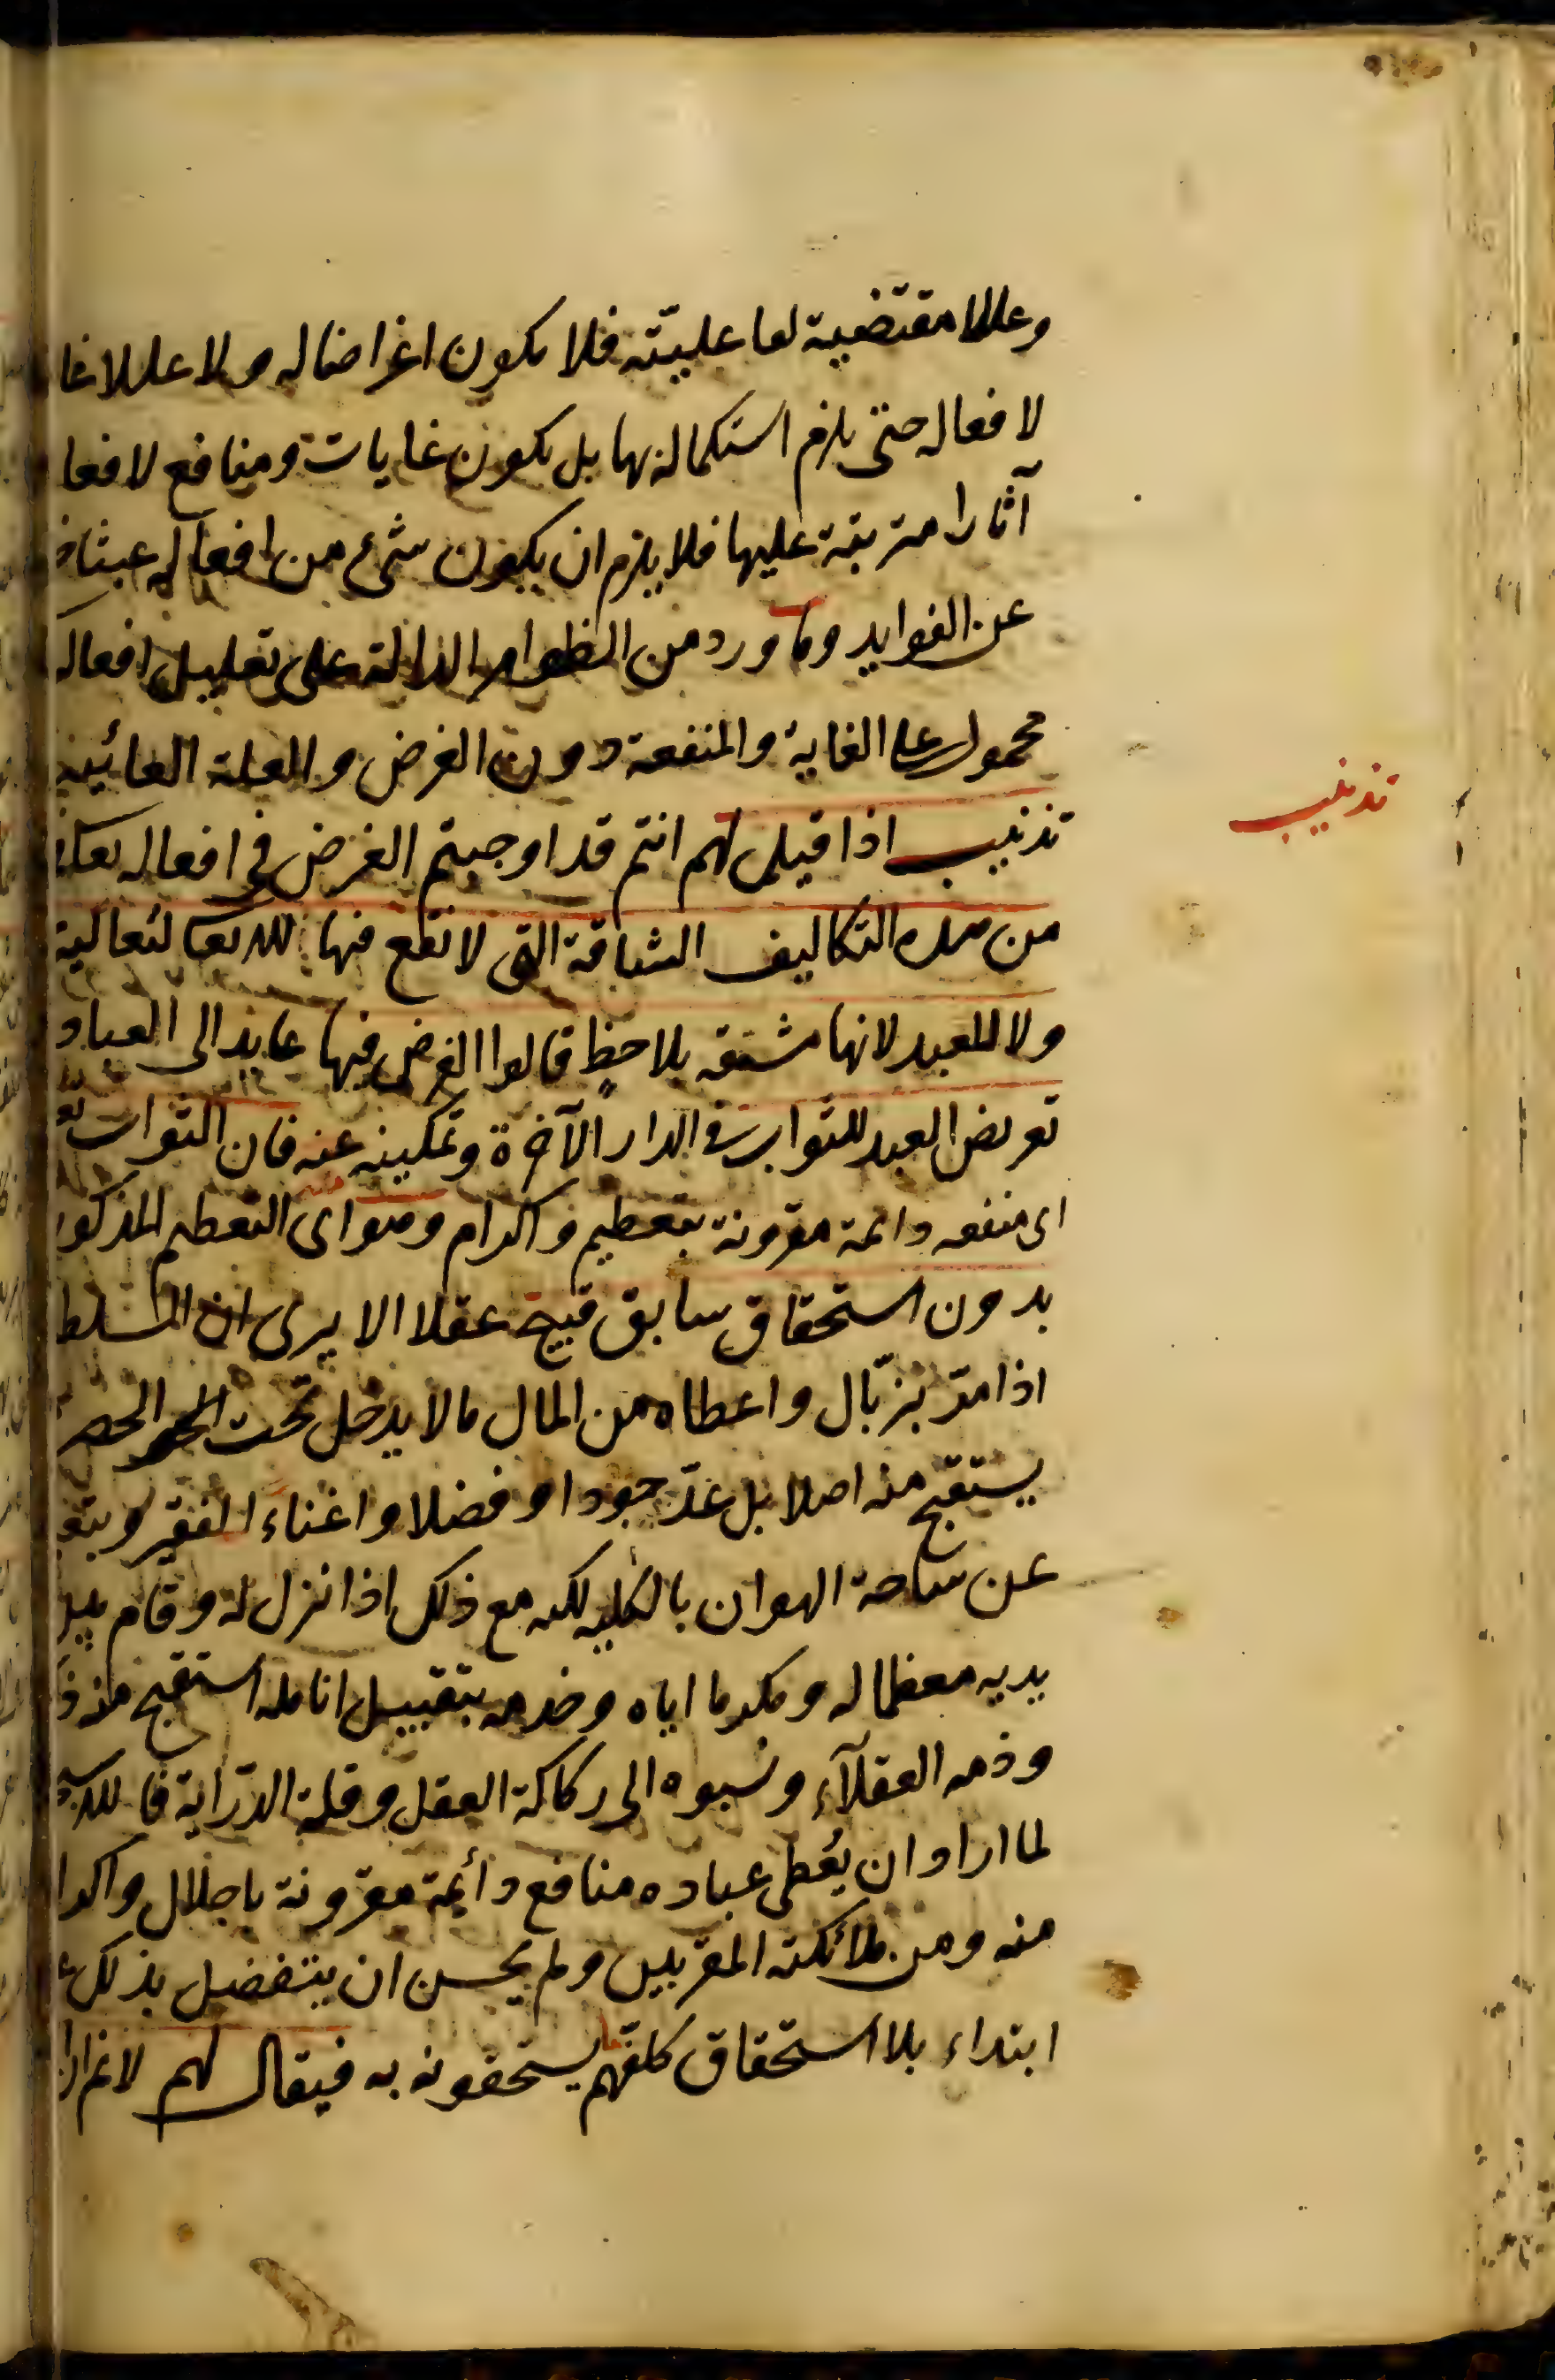 وعللا مقتضية لفاعليته فلا يكون اغراضا له ولا عللا غا
لافعاله حتى يلزم استكماله بها بل يكون غايات ومنافع لافعا
آثارا مترتبة عليها فلا يلزم ان يكون شئ من افعاله عبثا
عن الفوايد وما ورد من الظواهر الدالة على تعليل افعاله
محمول على الغاية والمنفعة دون الغرض والعلة الغائية
تذنيب
تذنيب اذا قيل لهم انتم قد اوجبتم الغرض في افعاله تعالى
من هذه التكاليف الشاقة التي لا نفع فيها لله تعالى لتعاليه
ولا للعبد لانها مشقة بلا حظٍ قالوا الغرض فيها عايد الى العباد
تعريض العبد للثواب في الدار الآخرة وتمكينه عنه فان الثواب
اى منفعه دائمة مقرونة بتعظيم واكرام وهو اى التعظيم المذكور
بدون استحقاق سابق قبيح عقلا الا يرى ان السلط
اذا مرّ بزبّال واعطاه من المال ما لا يدخل تحت الحصر
يستقبح منه اصلا بل عدّ جودا وفضلا واغناء للفقير وتبعـ
عن ساحة الهوان بالكليه لكنه مع ذلك اذا نزل له وقام بين
يديه معظما له ومكرما اياه وخدمه بتقبيل انامله استقبح منه ذ
وذمه العقلآء ونسبوه الى ركاكة العقل وقلة الدّراية فالله
لما اراد ان يُعطى عباده منافع دائمة مقرونة باجلال واكرا
منه ومن ملائكته المقربين ولم يحسن ان يتفضل بذلك ع
ابتداء بلا استحقاق كلفهم يستحقونه به فيقال لهم لا نم